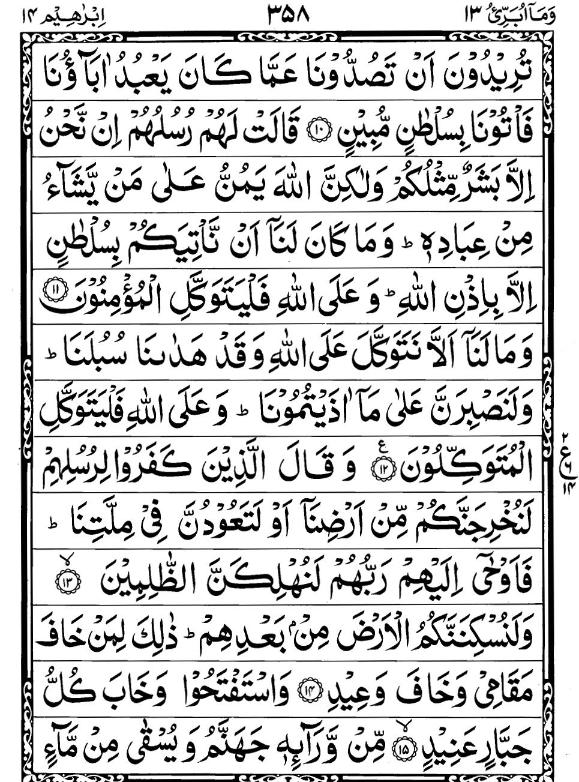 وَمَآ اُبَرِّئُ ١٣ ٣٥٨ اِبْرٰهِيْم ١٤
تُرِيْدُوْنَ اَنْ تَصُدُّوْنَا عَمَّا كَانَ يَعْبُدُ اٰبَآؤُنَا
فَاْتُوْنَا بِسُلْطٰنٍ مُّبِيْنٍ ١٠ قَالَتْ لَهُمْ رُسُلُهُمْ اِنْ نَّحْنُ
اِلَّا بَشَرٌ مِّثْلُكُمْ وَلٰكِنَّ اللهَ يَمُنُّ عَلٰى مَنْ يَّشَآءُ
مِنْ عِبَادِهٖ ؕ وَمَا كَانَ لَنَآ اَنْ نَّاْتِيَكُمْ بِسُلْطٰنٍ
اِلَّا بِاِذْنِ اللهِ ؕ وَعَلَى اللهِ فَلْيَتَوَكَّلِ الْمُؤْمِنُوْنَ ١١
وَمَا لَنَآ اَلَّا نَتَوَكَّلَ عَلَى اللهِ وَقَدْ هَدٰىنَا سُبُلَنَا ؕ
وَلَنَصْبِرَنَّ عَلٰى مَآ اٰذَيْتُمُوْنَا ؕ وَعَلَى اللهِ فَلْيَتَوَكَّلِ
الْمُتَوَكِّلُوْنَ ١٢ ع وَقَالَ الَّذِيْنَ كَفَرُوْا لِرُسُلِهِمْ
٢ ع ٦ ١٤
لَنُخْرِجَنَّكُمْ مِّنْ اَرْضِنَآ اَوْ لَتَعُوْدُنَّ فِيْ مِلَّتِنَا ؕ
فَاَوْحٰٓى اِلَيْهِمْ رَبُّهُمْ لَنُهْلِكَنَّ الظّٰلِمِيْنَ ١٣ لا
وَلَنُسْكِنَنَّكُمُ الْاَرْضَ مِنْۢ بَعْدِهِمْ ؕ ذٰلِكَ لِمَنْ خَافَ
مَقَامِيْ وَخَافَ وَعِيْدِ ١٤ وَاسْتَفْتَحُوْا وَخَابَ كُلُّ
جَبَّارٍ عَنِيْدٍ ١٥ لا مِّنْ وَّرَآئِهٖ جَهَنَّمُ وَيُسْقٰى مِنْ مَّآءٍ